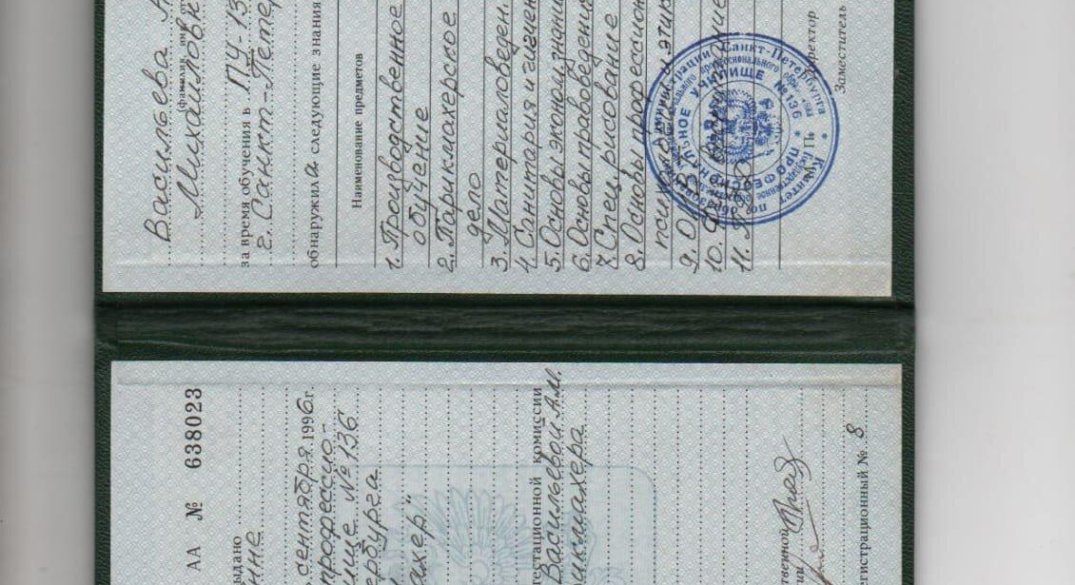 АА № 638023
ыдано
нне
сентября 1996 г.
профессио-
лище № 136
ербурга
ахер"
тестационной комиссии
Васильевой А.М.
икмахера
твенной
егистрационный № 8
Васильева А
Михайловн
(фамилия, имя
за время обучения в ПУ-13
г. Санкт-Петер
обнаружила следующие знания
Наименование предметов
1. Производственное
обучение
2. Парикмахерское
дело
3. Материаловеден
4. Санитария и гигиен
5. Основы экономзнани
6. Основы правоведения
7. Спецрисование
8. Основы профессион
этик
9. О
10.
11.
М.П.
Директор
Заместитель
Санкт-Петербурга
Комитет по
ПРОФЕССИОНАЛЬНОЕ УЧИЛИЩЕ № 136